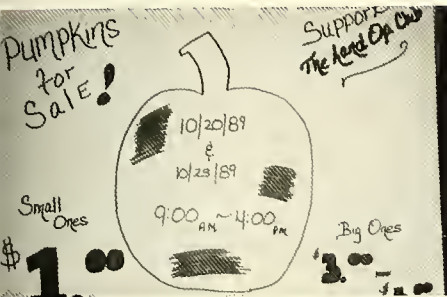 Pumpkins
for
Sale!
Support
The Land Op Club
10/20/89
&
10/23/89
9:00 AM ~ 4:00 PM
Small
Ones
$1.00
Big Ones
$3.00 -